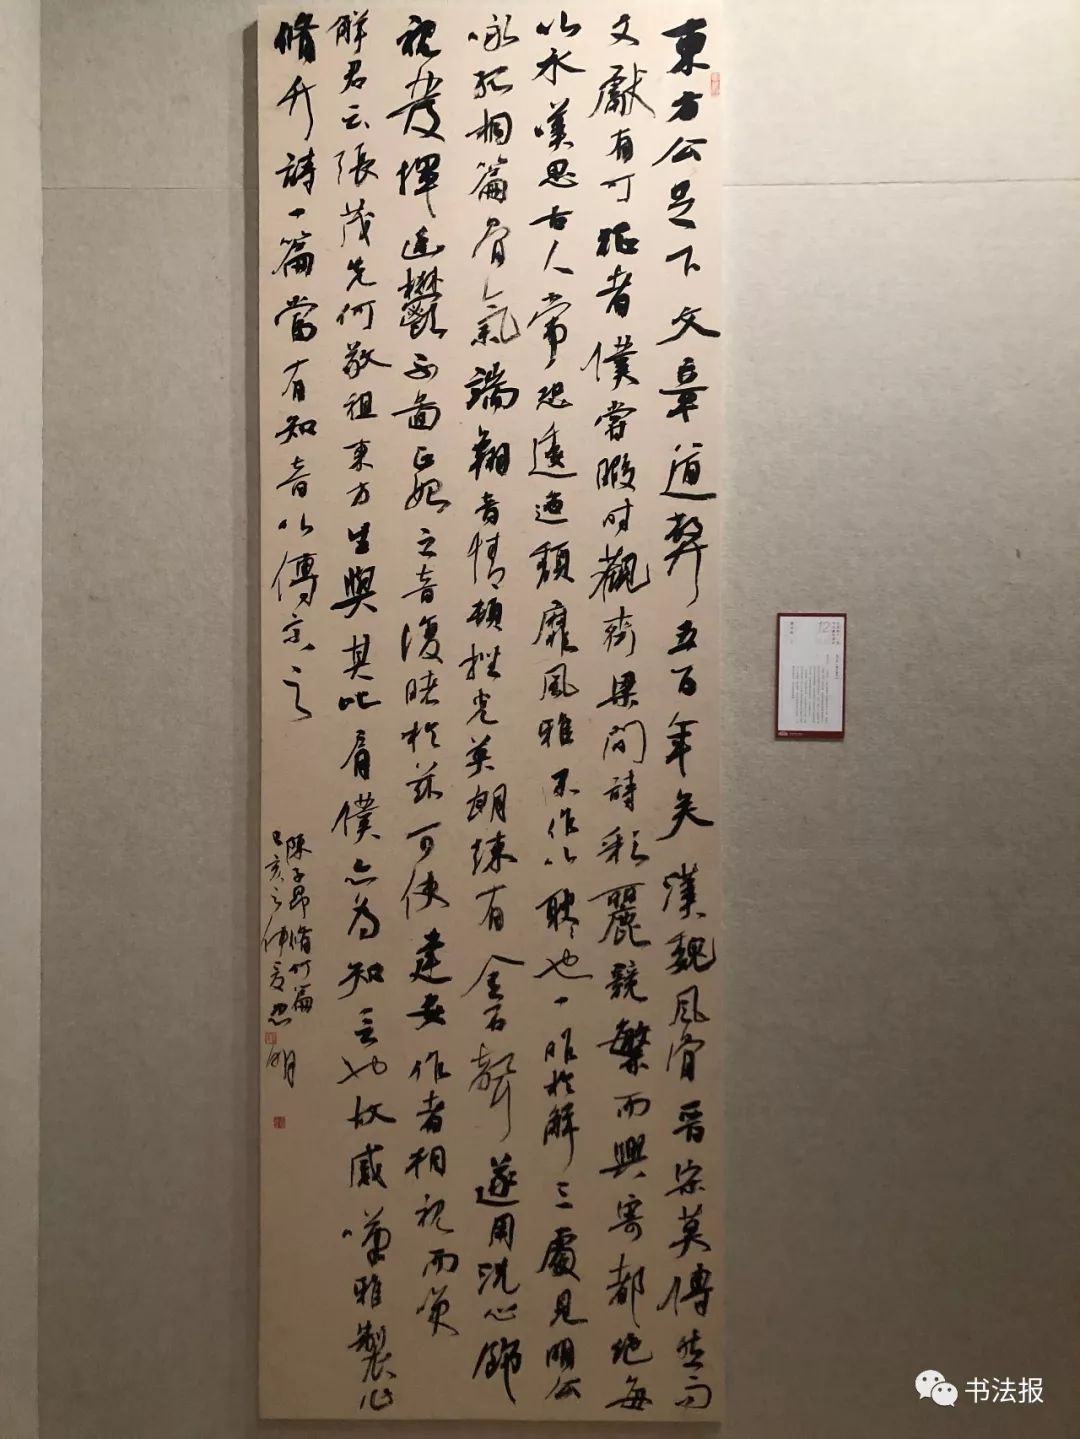 東方公足下文章道弊五百年矣漢魏風骨晉宋莫傳然而
文獻有可征者僕嘗暇時觀齊梁間詩彩麗競繁而興寄都絕每
以永嘆思古人常恐逶迤頹靡風雅不作以耿耿也一昨於解三處見明公
咏孤桐篇骨氣端翔音情頓挫光英朗練有金石聲遂用洗心飾
視發揮幽鬱不圖正始之音復睹於茲可使建安作者相視而笑
解君云張茂先何敬祖東方生與其比肩僕亦為知言也故感嘆雅製作
修竹詩一篇當有知音以傳示之
陳子昂脩竹篇
己亥之仲夏忠明
12
书法报